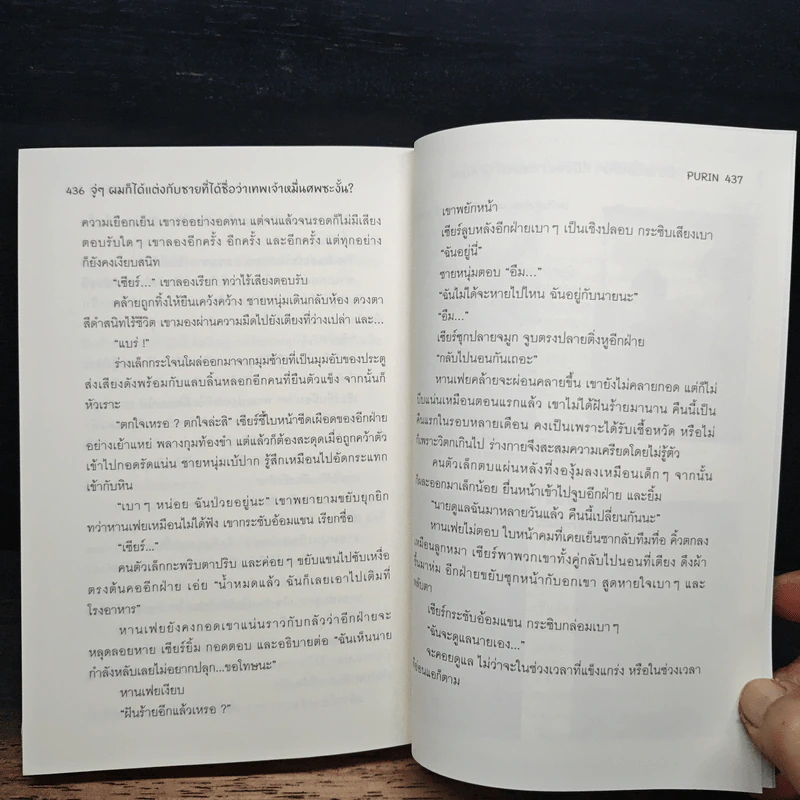 436 จู่ๆ ผมก็ได้แต่งกับชายที่ได้ชื่อว่าเทพเจ้าหมื่นศพซะงั้น?
ความเยือกเย็น เขารออย่างอดทน แต่จนแล้วจนรอดก็ไม่มีเสียง
ตอบรับใดๆ เขาลองอีกครั้ง อีกครั้ง และอีกครั้ง แต่ทุกอย่าง
ก็ยังคงเงียบสนิท
“เซียร์...” เขาลองเรียก ทว่าไร้เสียงตอบรับ
คล้ายถูกทิ้งให้ยืนเคว้งคว้าง ชายหนุ่มเดินกลับห้อง ดวงตา
สีดำสนิทไร้ชีวิต เขามองผ่านความมืดไปยังเตียงที่ว่างเปล่า และ...
“แบร่ !”
ร่างเล็กกระโจนโผล่ออกมาจากมุมซ้ายที่เป็นมุมอับของประตู
ส่งเสียงดังพร้อมกับแลบลิ้นหลอกอีกคนที่ยืนตัวแข็ง จากนั้นก็
หัวเราะ
“ตกใจเหรอ ? ตกใจล่ะสิ” เซียร์ชี้ใบหน้าซีดเผือดของอีกฝ่าย
อย่างเย้าแหย่ พลางกุมท้องขำ แต่แล้วก็ต้องสะดุดเมื่อถูกคว้าตัว
เข้าไปกอดรัดแน่น ชายหนุ่มเบ้ปาก รู้สึกเหมือนไปอัดกระแทก
เข้ากับหิน
“เบาๆ หน่อย ฉันป่วยอยู่นะ” เขาพยายามขยับยุกยิก
ทว่าหานเฟยเหมือนไม่ได้ฟัง เขากระชับอ้อมแขน เรียกชื่อ
“เซียร์...”
คนตัวเล็กกะพริบตาปริบ และค่อยๆ ขยับแขนไปซับเหงื่อ
ตรงต้นคออีกฝ่าย เอ่ย “น้ำหมดแล้ว ฉันก็เลยเอาไปเติมที่
โรงอาหาร”
หานเฟยยังคงกอดเขาแน่นราวกับกลัวว่าอีกฝ่ายจะ
หลุดลอยหาย เซียร์ยิ้ม กอดตอบ และอธิบายต่อ “ฉันเห็นนาย
กำลังหลับเลยไม่อยากปลุก...ขอโทษนะ”
หานเฟยเงียบ
“ฝันร้ายอีกแล้วเหรอ ?”
PURIN 437
เขาพยักหน้า
เซียร์ลูบหลังอีกฝ่ายเบาๆ เป็นเชิงปลอบ กระซิบเสียงเบา
“ฉันอยู่นี่”
ชายหนุ่มตอบ “อืม...”
“ฉันไม่ได้จะหายไปไหน ฉันอยู่กับนายนะ”
“อืม...”
เซียร์ซุกปลายจมูก จูบตรงปลายติ่งหูอีกฝ่าย
“กลับไปนอนกันเถอะ”
หานเฟยคล้ายจะผ่อนคลายขึ้น เขายังไม่คลายกอด แต่ก็ไม่
บีบแน่นเหมือนตอนแรกแล้ว เขาไม่ได้ฝันร้ายมานาน คืนนี้เป็น
คืนแรกในรอบหลายเดือน คงเป็นเพราะได้รับเชื้อหวัด หรือไม่
ก็เพราะวิตกเกินไป ร่างกายจึงสะสมความเครียดโดยไม่รู้ตัว
คนตัวเล็กตบแผ่นหลังที่งองุ้มลงเหมือนเด็กๆ จากนั้น
ผละออกมาเล็กน้อย ยื่นหน้าเข้าไปจูบอีกฝ่าย และยิ้ม
“นายดูแลฉันมาหลายวันแล้ว คืนนี้เปลี่ยนกันนะ”
หานเฟยไม่ตอบ ใบหน้าคมที่เคยเย็นชากลับทึมทื่อ คิ้วตกลง
เหมือนลูกหมา เซียร์พาพวกเขาทั้งคู่กลับไปนอนที่เตียง ดึงผ้า
ขึ้นมาห่ม อีกฝ่ายขยับซุกหน้ากับอกเขา สูดหายใจเบาๆ และ
หลับตา
เซียร์กระชับอ้อมแขน กระซิบกล่อมเบาๆ
“ฉันจะดูแลนายเอง...”
จะคอยดูแล ไม่ว่าจะในช่วงเวลาที่แข็งแกร่ง หรือในช่วงเวลา
ที่อ่อนแอก็ตาม